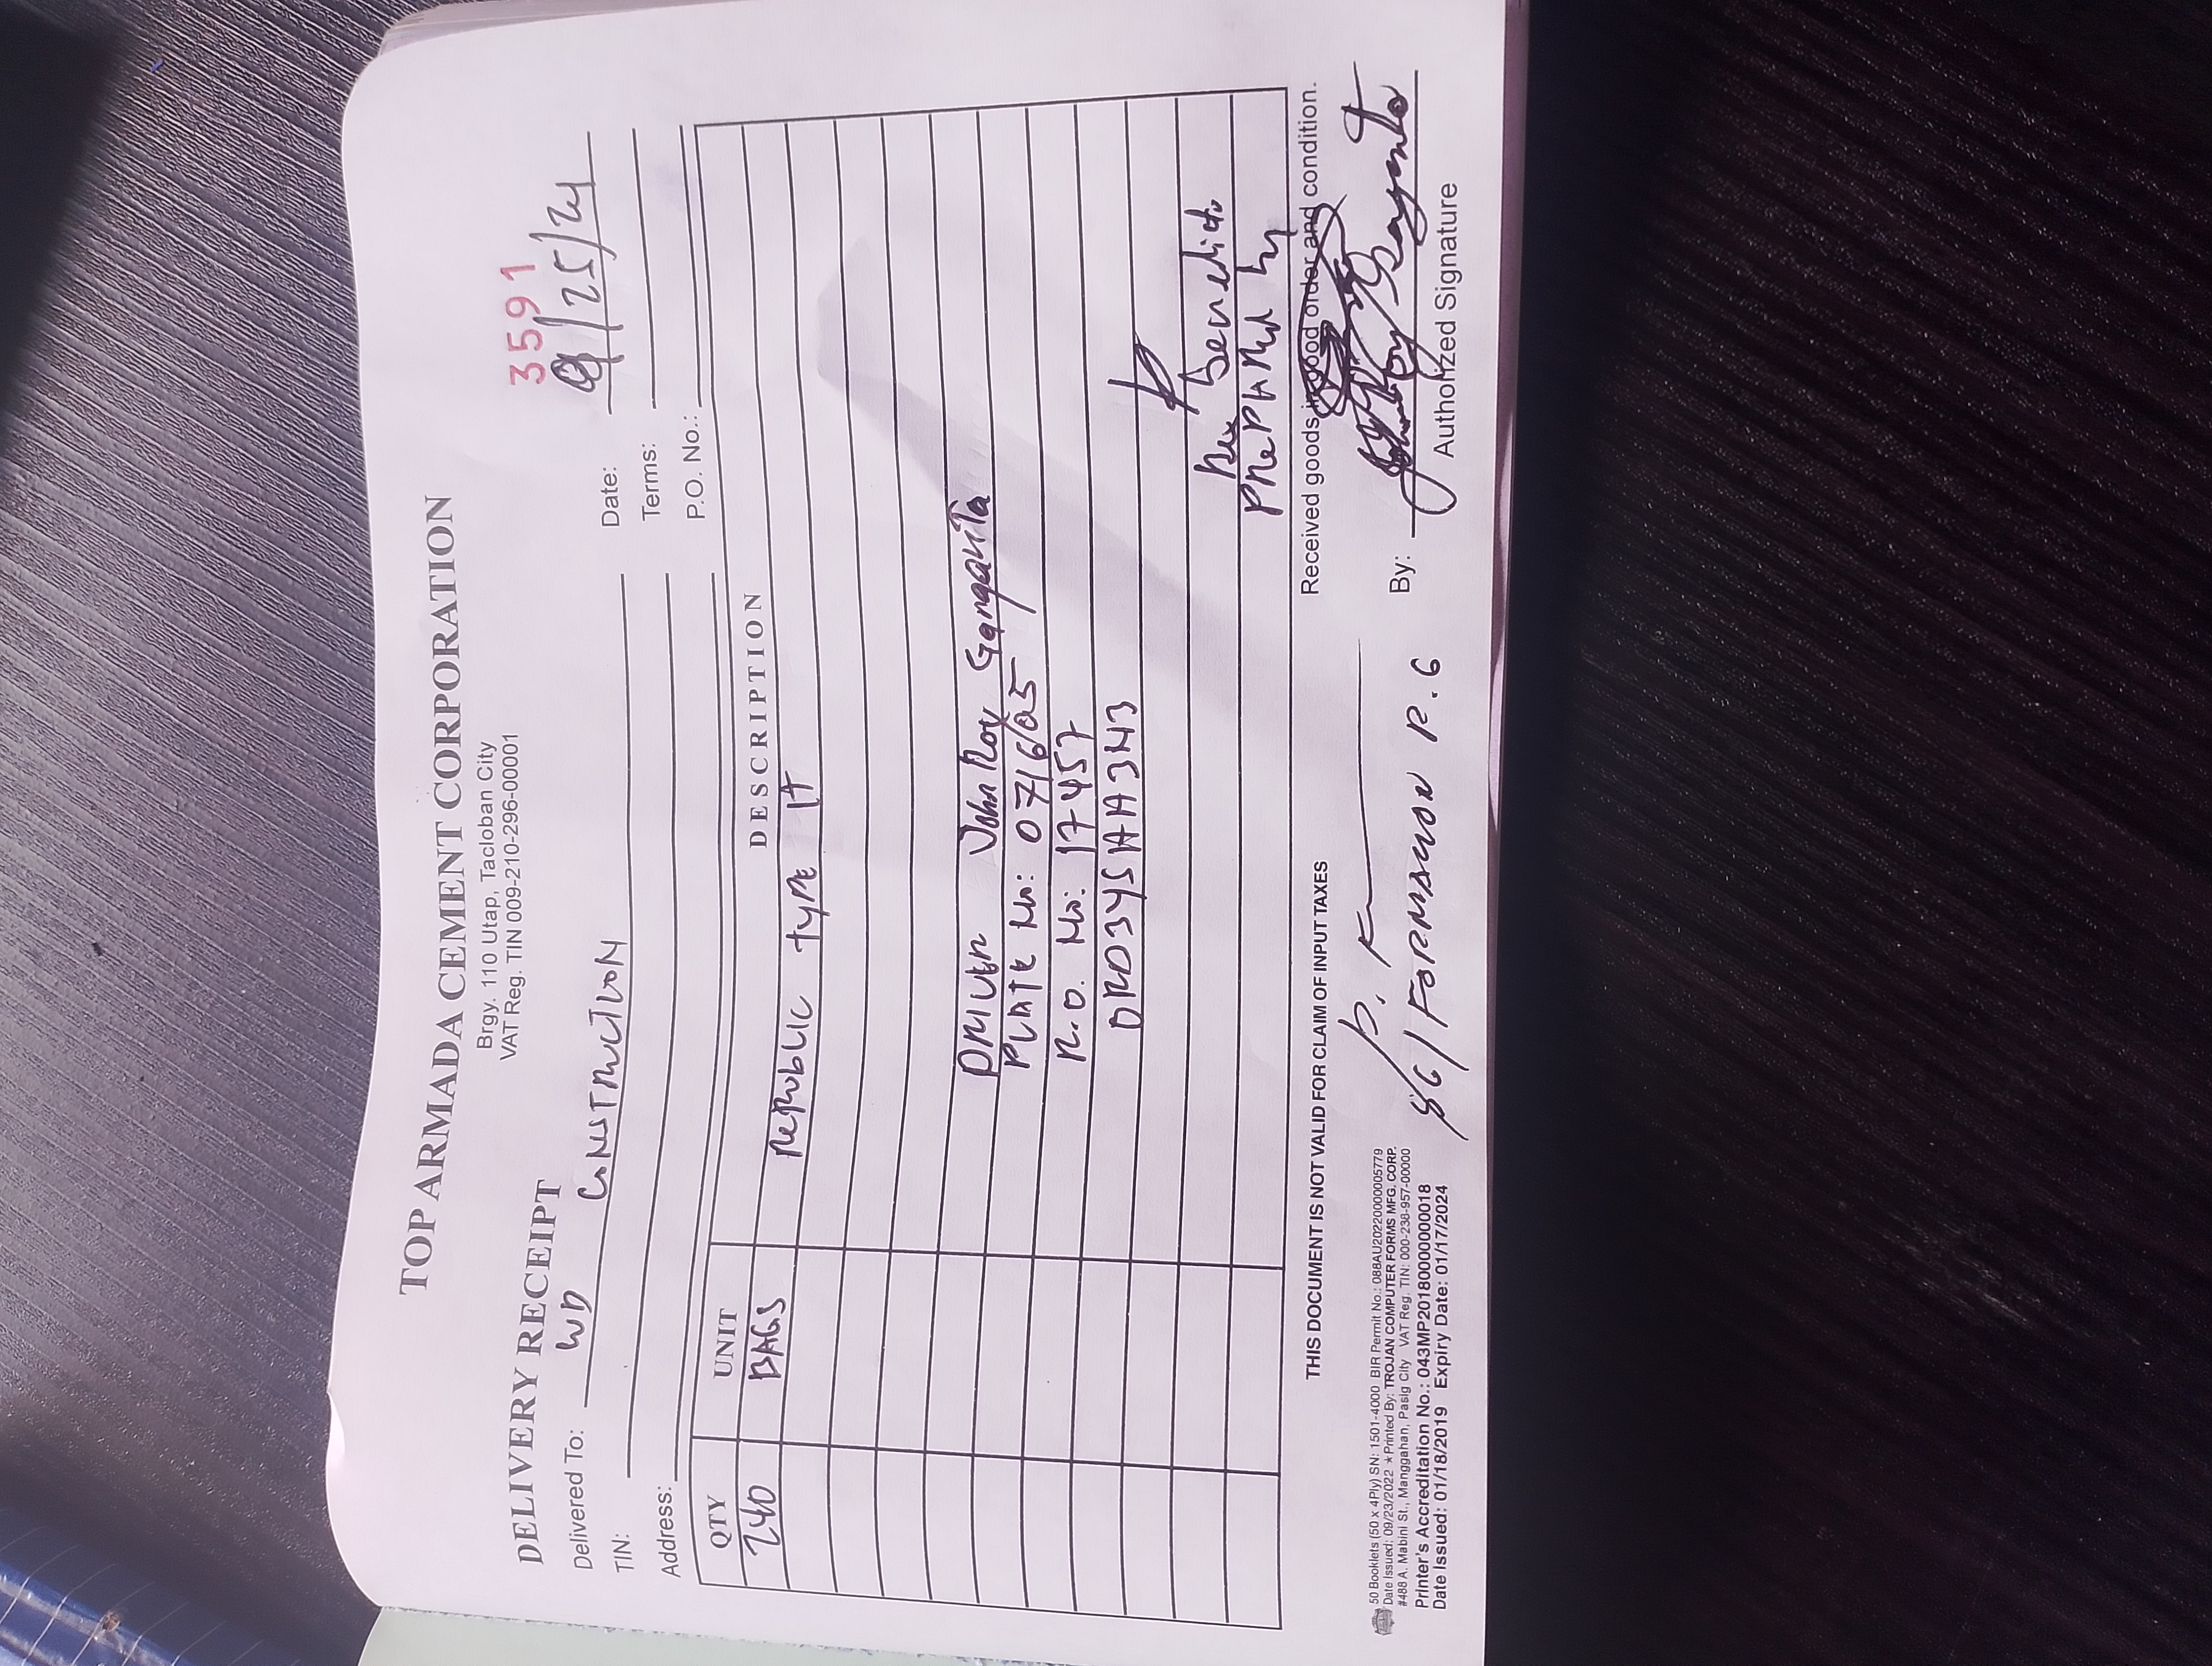 TOP ARMADA CEMENT CORPORATION
Brgy. 110 Utap, Tacloban City
VAT Reg. TIN 009-210-296-00001
DELIVERY RECEIPT
3591
Delivered To: WD CONSTRUCTION
Date: 9/25/24
TIN:
Terms:
Address:
P.O. No.:
QTY UNIT DESCRIPTION
240 BAGS REPUBLIC TYPE 1T
DRIVER John Roy
PLATE No: 0716
R.O. No: 17457
Rex Benedicto
PREPARED by
THIS DOCUMENT IS NOT VALID FOR CLAIM OF INPUT TAXES
Received goods in good order and condition.
SG/ R.G
By:
Authorized Signature
50 Booklets (50 x 4Ply) SN: 1501-4000 BIR Permit No.: 088AU20222000005779
Date Issued: 09/23/2022 ★ Printed By: TROJAN COMPUTER FORMS MFG. CORP.
#488 A. Mabini St., Manggahan, Pasig City VAT Reg. TIN: 000-238-957-00000
Printer's Accreditation No.: 043MP20180000000018
Date Issued: 01/18/2019 Expiry Date: 01/17/2024